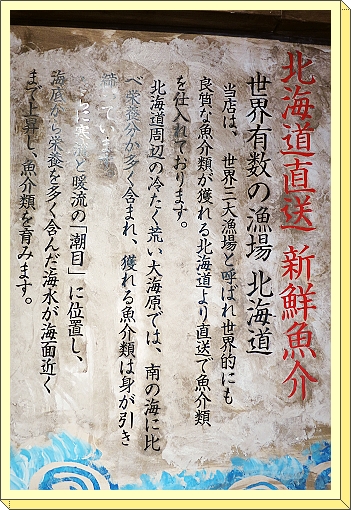 北海道直送 新鮮魚介
世界有数の漁場 北海道
当店は、世界三大漁場と呼ばれ世界的にも
良質な魚介類が獲れる北海道より直送で魚介類
を仕入れております。
北海道周辺の冷たく荒い大海原では、南の海に比
べ栄養分が多く含まれ、獲れる魚介類は身が引き
締っています
らに寒流と暖流の「潮目」に位置し、
海底から栄養を多く含んだ海水が海面近く
まで上昇し、魚介類を育みます。